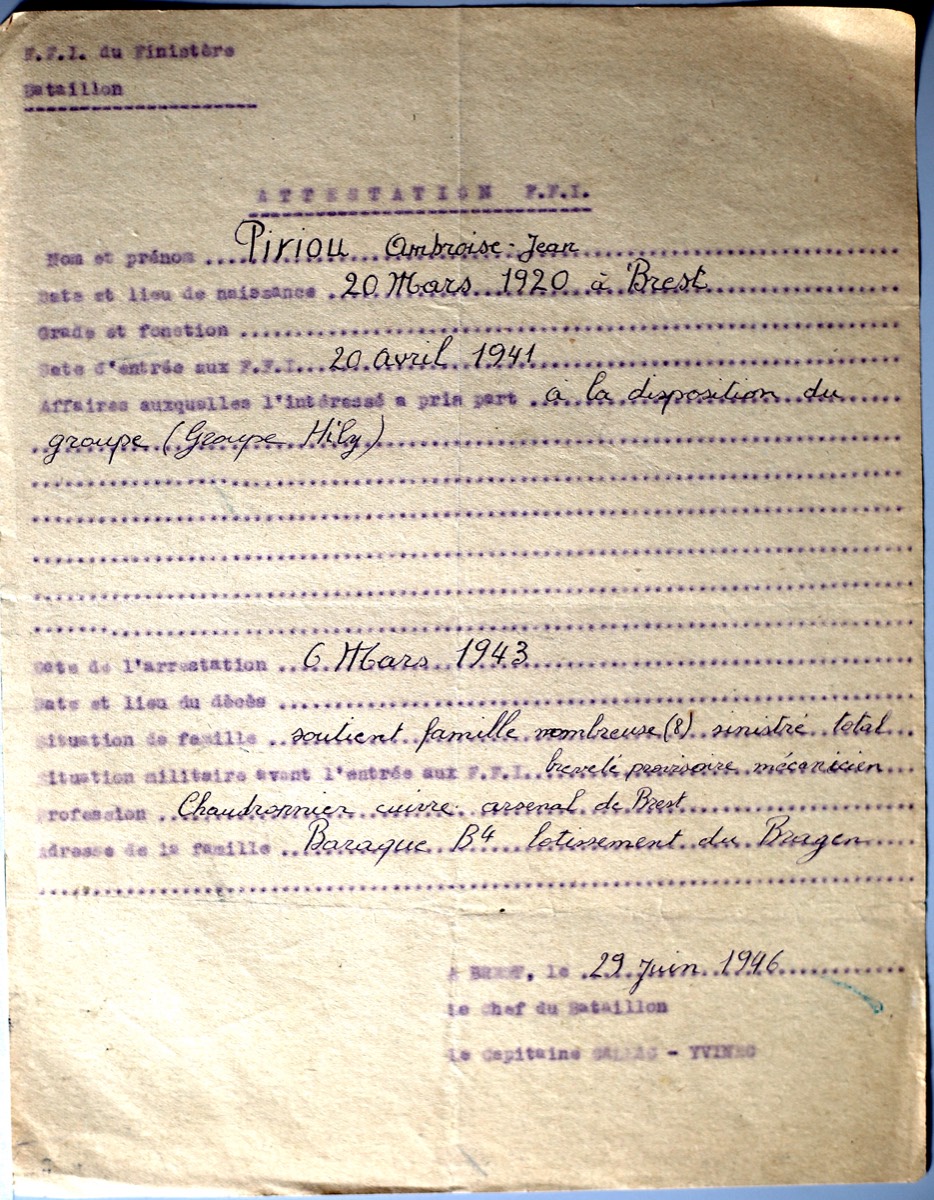 F.F.I. du Finistère
Bataillon
ATTESTATION F.F.I.
Nom et prénom Piriou Ambroise-Jean
Date et lieu de naissance 20 Mars 1920 à Brest
Grade et fonction
Date d'entrée aux F.F.I. 20 avril 1941
Affaires auxquelles l'intéressé a pris part à la disposition du
groupe (Groupe Hily)
Date de l'arrestation 6 Mars 1943
Date et lieu du décès
Situation de famille soutient famille nombreuse (8) sinistré total
Situation militaire avant l'entrée aux F.F.I. breveté provisoire mécanicien
Profession Chaudronnier cuivre arsenal de Brest
Adresse de la famille Baraque B4 lotissement du
A BREST, le 29 Juin 1946
Le Chef du Bataillon
Le Capitaine - YVINEC